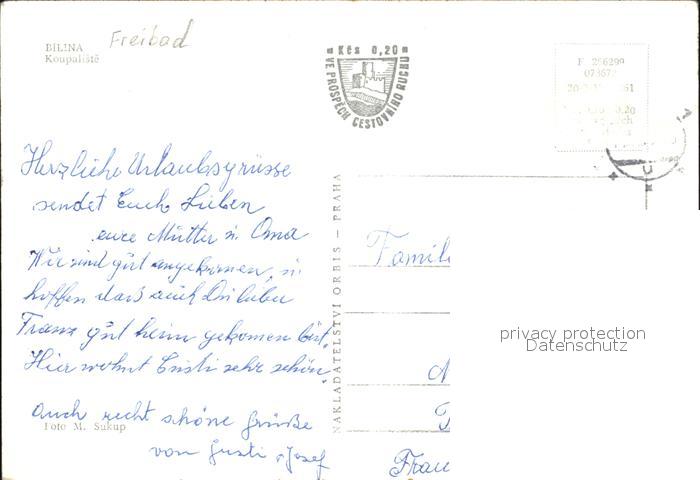 BÍLINA
Koupaliště
Freibad
Kčs 0,20
VE PROSPĚCH CESTOVNÍHO RUCHU
F 256299
Herzliche Urlaubsgrüsse
sendet Euch Lieben
eure Mutter u. Oma
Wir sind gut angekomen, u.
hoffen dass auch Du lieber
Franz gut heim gekomen bist.
Hier wohnt Gusti sehr schön.
Auch recht schöne Grüße
von Gusti u. Josef
Foto M. Sukup
NAKLADATELSTVÍ ORBIS – PRAHA
Famil
privacy protection
Datenschutz